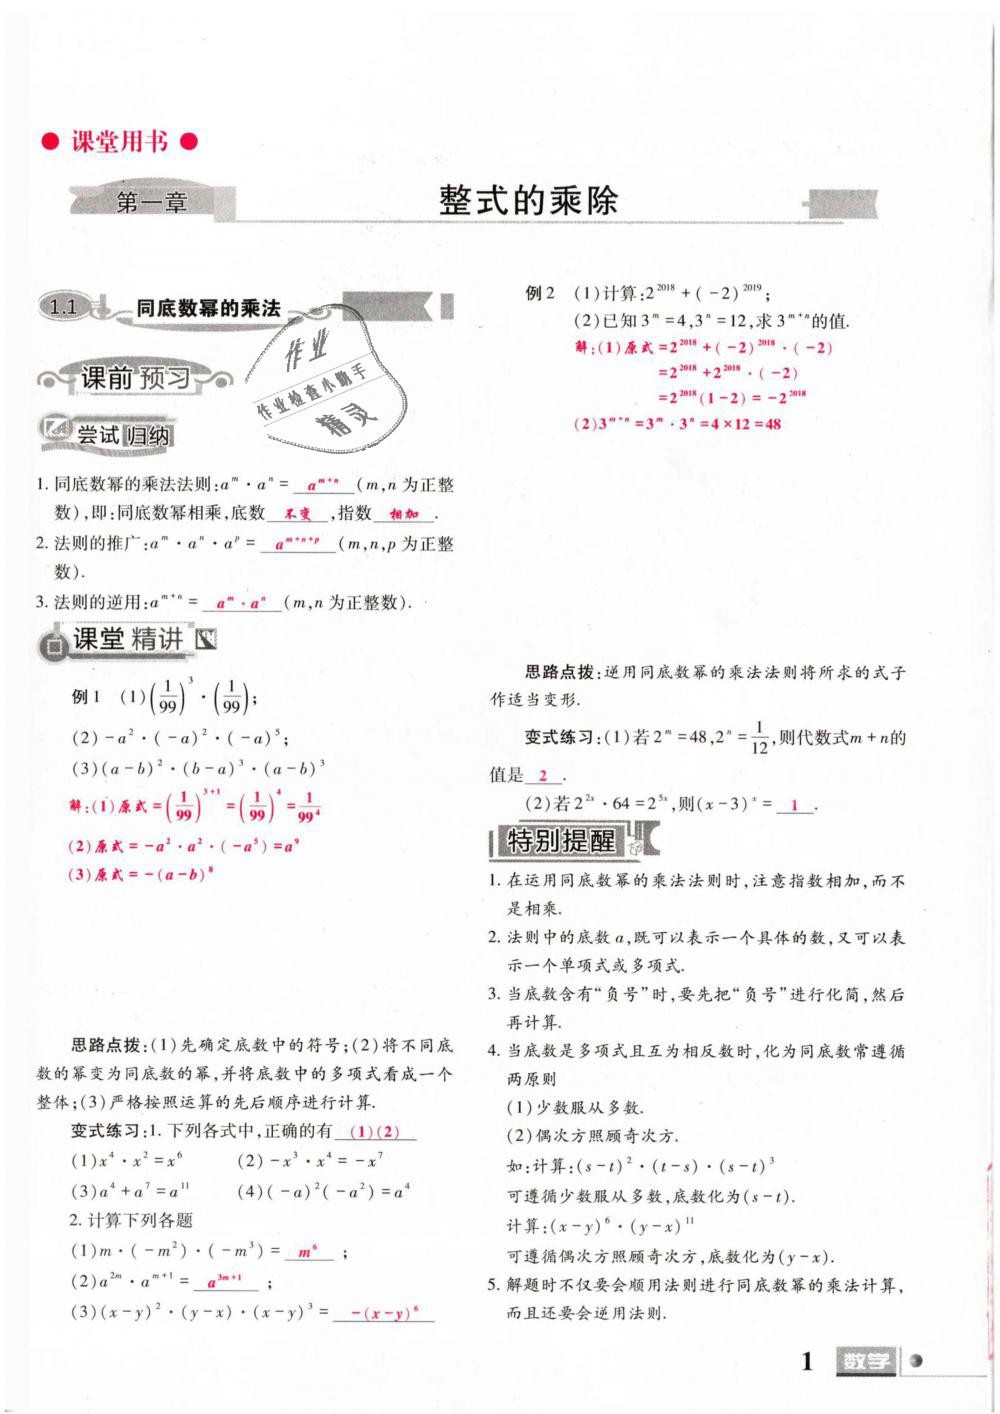 ● 课堂用书 ●
第一章
整式的乘除
1.1 同底数幂的乘法
课前预习
尝试归纳
1. 同底数幂的乘法法则:a^m·a^n = a^{m+n} (m,n 为正整
数),即:同底数幂相乘,底数 不变 ,指数 相加 .
2. 法则的推广:a^m·a^n·a^p = a^{m+n+p} (m,n,p 为正整
数).
3. 法则的逆用:a^{m+n} = a^m·a^n (m,n 为正整数).
课堂精讲
例1 (1)(1/99)^3·(1/99);
(2)-a^2·(-a)^2·(-a)^5;
(3)(a-b)^2·(b-a)^3·(a-b)^3
解:(1)原式=(1/99)^{3+1}=(1/99)^4=1/99^4
(2)原式=-a^2·a^2·(-a^5)=a^9
(3)原式=-(a-b)^8
思路点拨:(1)先确定底数中的符号;(2)将不同底
数的幂变为同底数的幂,并将底数中的多项式看成一个
整体;(3)严格按照运算的先后顺序进行计算.
变式练习:1. 下列各式中,正确的有 (1)(2)
(1)x^4·x^2=x^6 (2)-x^3·x^4=-x^7
(3)a^4+a^7=a^11 (4)(-a)^2(-a^2)=a^4
2. 计算下列各题
(1)m·(-m^2)·(-m^3)= m^6 ;
(2)a^{2m}·a^{m+1}= a^{3m+1} ;
(3)(x-y)^2·(y-x)·(x-y)^3= -(x-y)^6
作业
作业检查小助手
精灵
例2 (1)计算:2^2018+(-2)^2019;
(2)已知3^m=4,3^n=12,求3^{m+n}的值.
解:(1)原式=2^2018+(-2)^2018·(-2)
=2^2018+2^2018·(-2)
=2^2018(1-2)=-2^2018
(2)3^{m+n}=3^m·3^n=4×12=48
思路点拨:逆用同底数幂的乘法法则将所求的式子
作适当变形.
变式练习:(1)若2^m=48,2^n=1/12,则代数式m+n的
值是 2 .
(2)若2^{2x}·64=2^{5x},则(x-3)^x= 1 .
特别提醒
1. 在运用同底数幂的乘法法则时,注意指数相加,而不
是相乘.
2. 法则中的底数a,既可以表示一个具体的数,又可以表
示一个单项式或多项式.
3. 当底数含有“负号”时,要先把“负号”进行化简,然后
再计算.
4. 当底数是多项式且互为相反数时,化为同底数常遵循
两原则
(1)少数服从多数.
(2)偶次方照顾奇次方.
如:计算:(s-t)^2·(t-s)·(s-t)^3
可遵循少数服从多数,底数化为(s-t).
计算:(x-y)^6·(y-x)^11
可遵循偶次方照顾奇次方,底数化为(y-x).
5. 解题时不仅要会顺用法则进行同底数幂的乘法计算,
而且还要会逆用法则.
1 数学